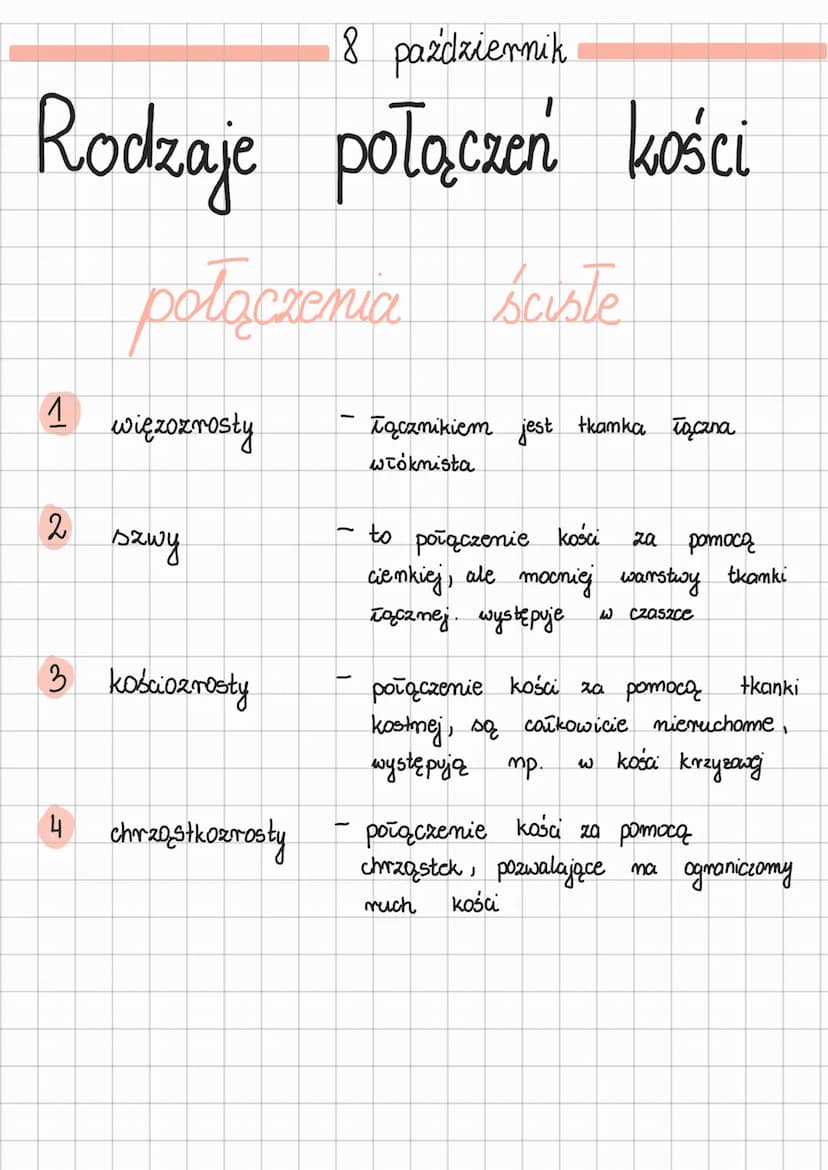 8 październik
Rodzaje połączeń kości
połączenia ścisłe
1 więzozrosty - łącznikiem jest tkanka łączna
włóknista
2 szwy - to połączenie kości za pomocą
cienkiej, ale mocniej warstwy tkanki
łącznej. występuje w czaszce
3 kościozrosty - połączenie kości za pomocą tkanki
kostnej, są całkowicie nieruchome,
występują np. w kości krzyżowej
4 chrząstkozrosty - połączenie kości za pomocą
chrząstek, pozwalające na ograniczony
ruch kości